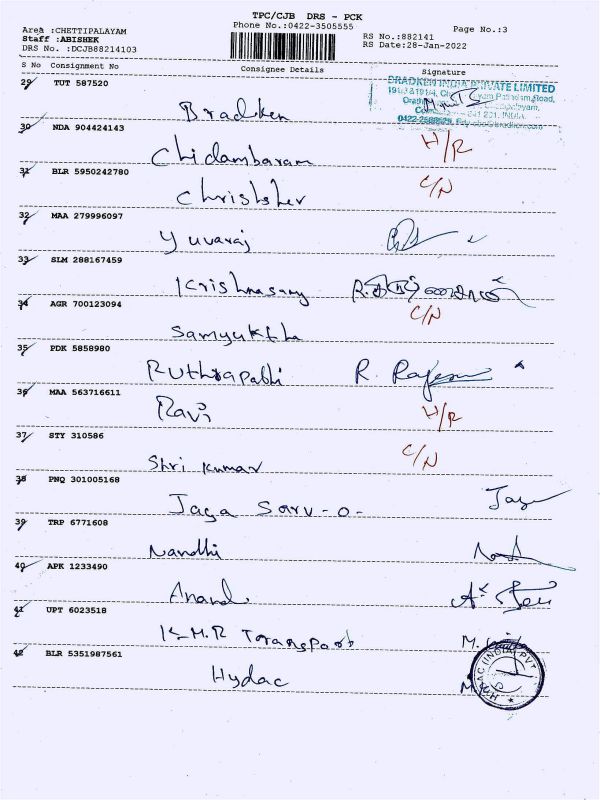 TPC/CJB DRS - PCK
Area :CHETTIPALAYAM Phone No.:0422-3505555 Page No.:3
Staff :ABISHEK RS No.:882141
DRS No. :DCJB88214103 RS Date:28-Jan-2022
S No Consignment No Consignee Details Signature
29 TUT 587520
BRADKEN INDIA PRIVATE LIMITED
Bradken
30 NDA 904424143 H/R
Chidambaram
31 BLR 5950242780 C/N
Christher
32 MAA 279996097
Yuvaraj
33 SLM 288167459
Krishnasamy
34 AGR 700123094 C/N
Samyuktha
35 PDK 5858980
Ruthrapathi R.
36 MAA 563716611
Ravi H/R
37 STY 310586 C/N
Shri Kumar
38 PNQ 301005168
Jaga Sarv-o-
39 TRP 6771608
Nandhi
40 APK 1233490
Anand
41 UPT 6023518
K.M.R Transport M.
42 BLR 5351987561
Hydac